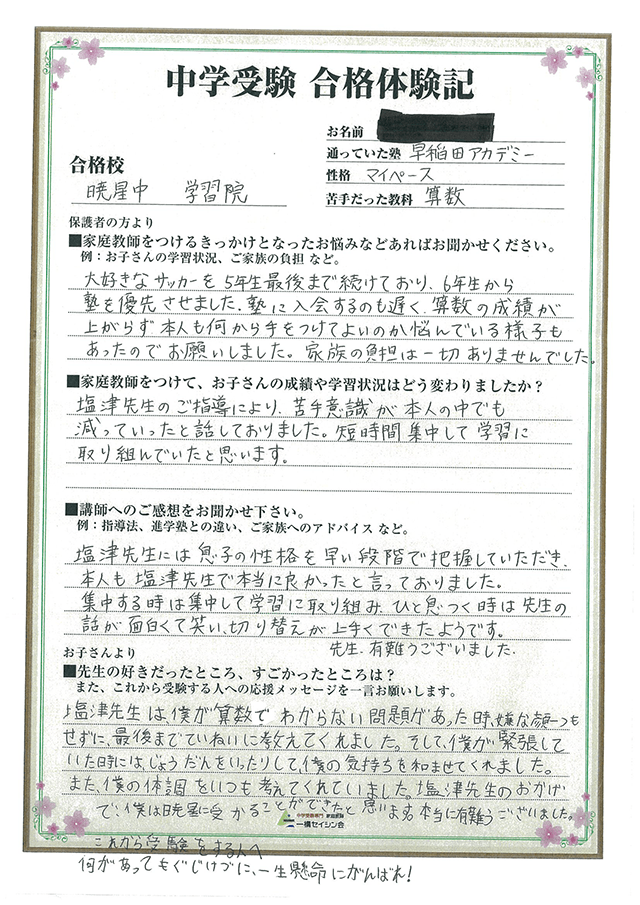 中学受験 合格体験記
お名前
通っていた塾 早稲田アカデミー
性格 マイペース
苦手だった教科 算数
合格校
暁星中 学習院
保護者の方より
■家庭教師をつけるきっかけとなったお悩みなどあればお聞かせください。
例：お子さんの学習状況、ご家族の負担 など。
大好きなサッカーを5年生最後まで続けており、6年生から
塾を優先させました。塾に入会するのも遅く、算数の成績が
上がらず本人も何から手をつけてよいのか悩んでいる様子も
あったのでお願いしました。家族の負担は一切ありませんでした。
■家庭教師をつけて、お子さんの成績や学習状況はどう変わりましたか？
塩津先生のご指導により、苦手意識が本人の中でも
減っていったと話しておりました。短時間集中して学習に
取り組んでいたと思います。
■講師へのご感想をお聞かせ下さい。
例：指導法、進学塾との違い、ご家族へのアドバイス など。
塩津先生には息子の性格を早い段階で把握していただき、
本人も塩津先生で本当に良かったと言っておりました。
集中する時は集中して学習に取り組み、ひと息つく時は先生の
話が面白くて笑い、切り替えが上手くできたようです。
先生、有難うございました。
お子さんより
■先生の好きだったところ、すごかったところは？
また、これから受験する人への応援メッセージを一言お願いします。
塩津先生は、僕が算数でわからない問題があった時、嫌な顔一つも
せずに、最後までていねいに教えてくれました。そして、僕が緊張して
いた時には、じょうだんをいったりして、僕の気持ちを和ませてくれました。
また、僕の体調をいつも考えてくれていました。塩津先生のおかげ
で、僕は暁星に受かることができたと思います。本当に有難うございました。
中学受験専門 家庭教師
一橋セイシン会
これから受験をする人へ
何があってもぐじけづに、一生懸命にがんばれ！